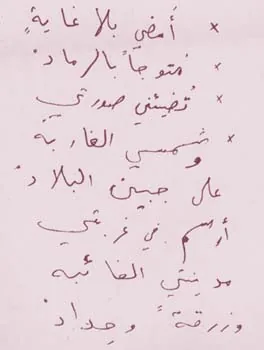 × أمضي بلا غايةٍ
× متوجاً بالرماد
× تُضيئني صورتي
× وشمسي الغاربه
على جبين البلاد
أرسم في غربتي
مدينتي الغائبه
وزرقةً وحداد